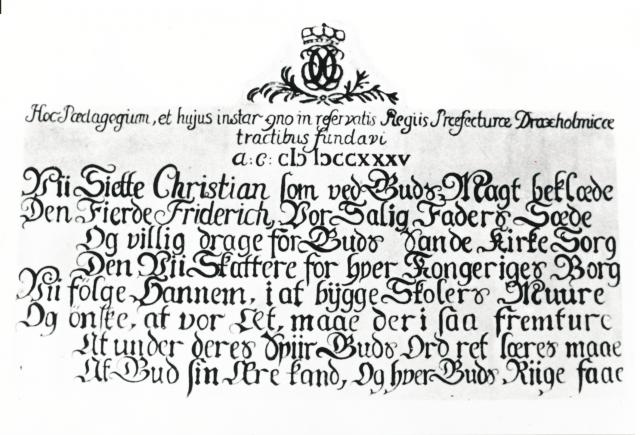 Hoc Pædagogium, et hujus instar 9no in reservatis Regiis Præfecturæ Draxholmicæ
tractibus fundavi
a: C: cIɔ IɔCCXXXV
Vii Siette Christian som ved Guds Magt beklæde
Den Fierde Friderich, Vor Salig Faders Sæde
Og villig drage for Guds Sande Kirke Sorg
Den Vii Skattere for hver Kongeriges Borg
Vii fölge Hannem, i at bÿgge Skolers Muure
Og önske, at vor Æt, maae der i saa fremture
At under deres Spiir Guds Ord ret læres maae
At Gud sin Ære kand, Og hver Guds Riige faae